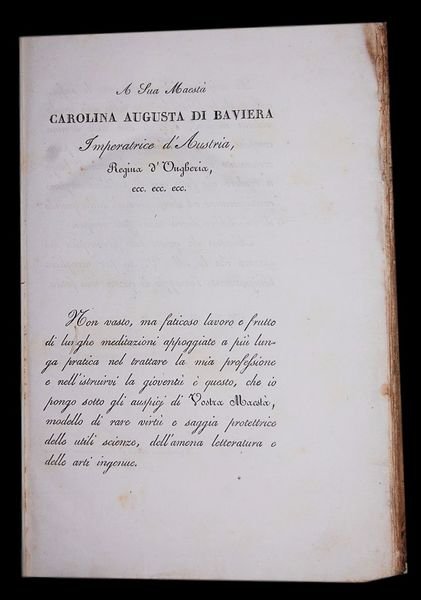 A Sua Maestà
CAROLINA AUGUSTA DI BAVIERA
Imperatrice d'Austria,
Regina d'Ungheria,
ecc. ecc. ecc.
Non vasto, ma faticoso lavoro e frutto
di lunghe meditazioni appoggiate a più lun-
ga pratica nel trattare la mia professione
e nell'istruirvi la gioventù è questo, che io
pongo sotto gli auspicj di Vostra Maestà,
modello di rare virtù e saggia protettrice
delle utili scienze, dell'amena letteratura e
delle arti ingenue.